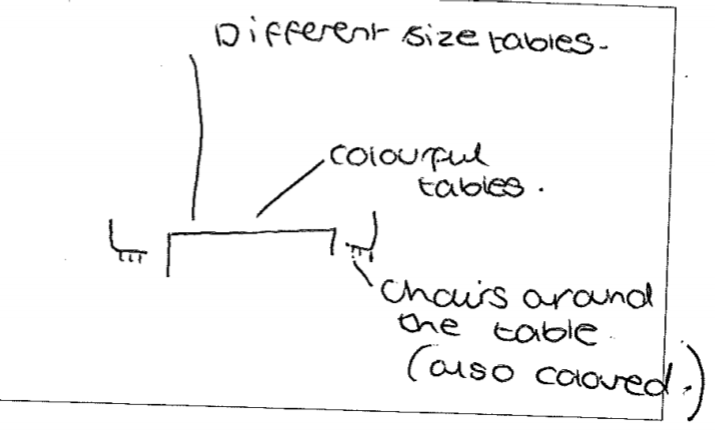 Different size tables.
colourful
tables.
Chairs around
the table
(also colored.)